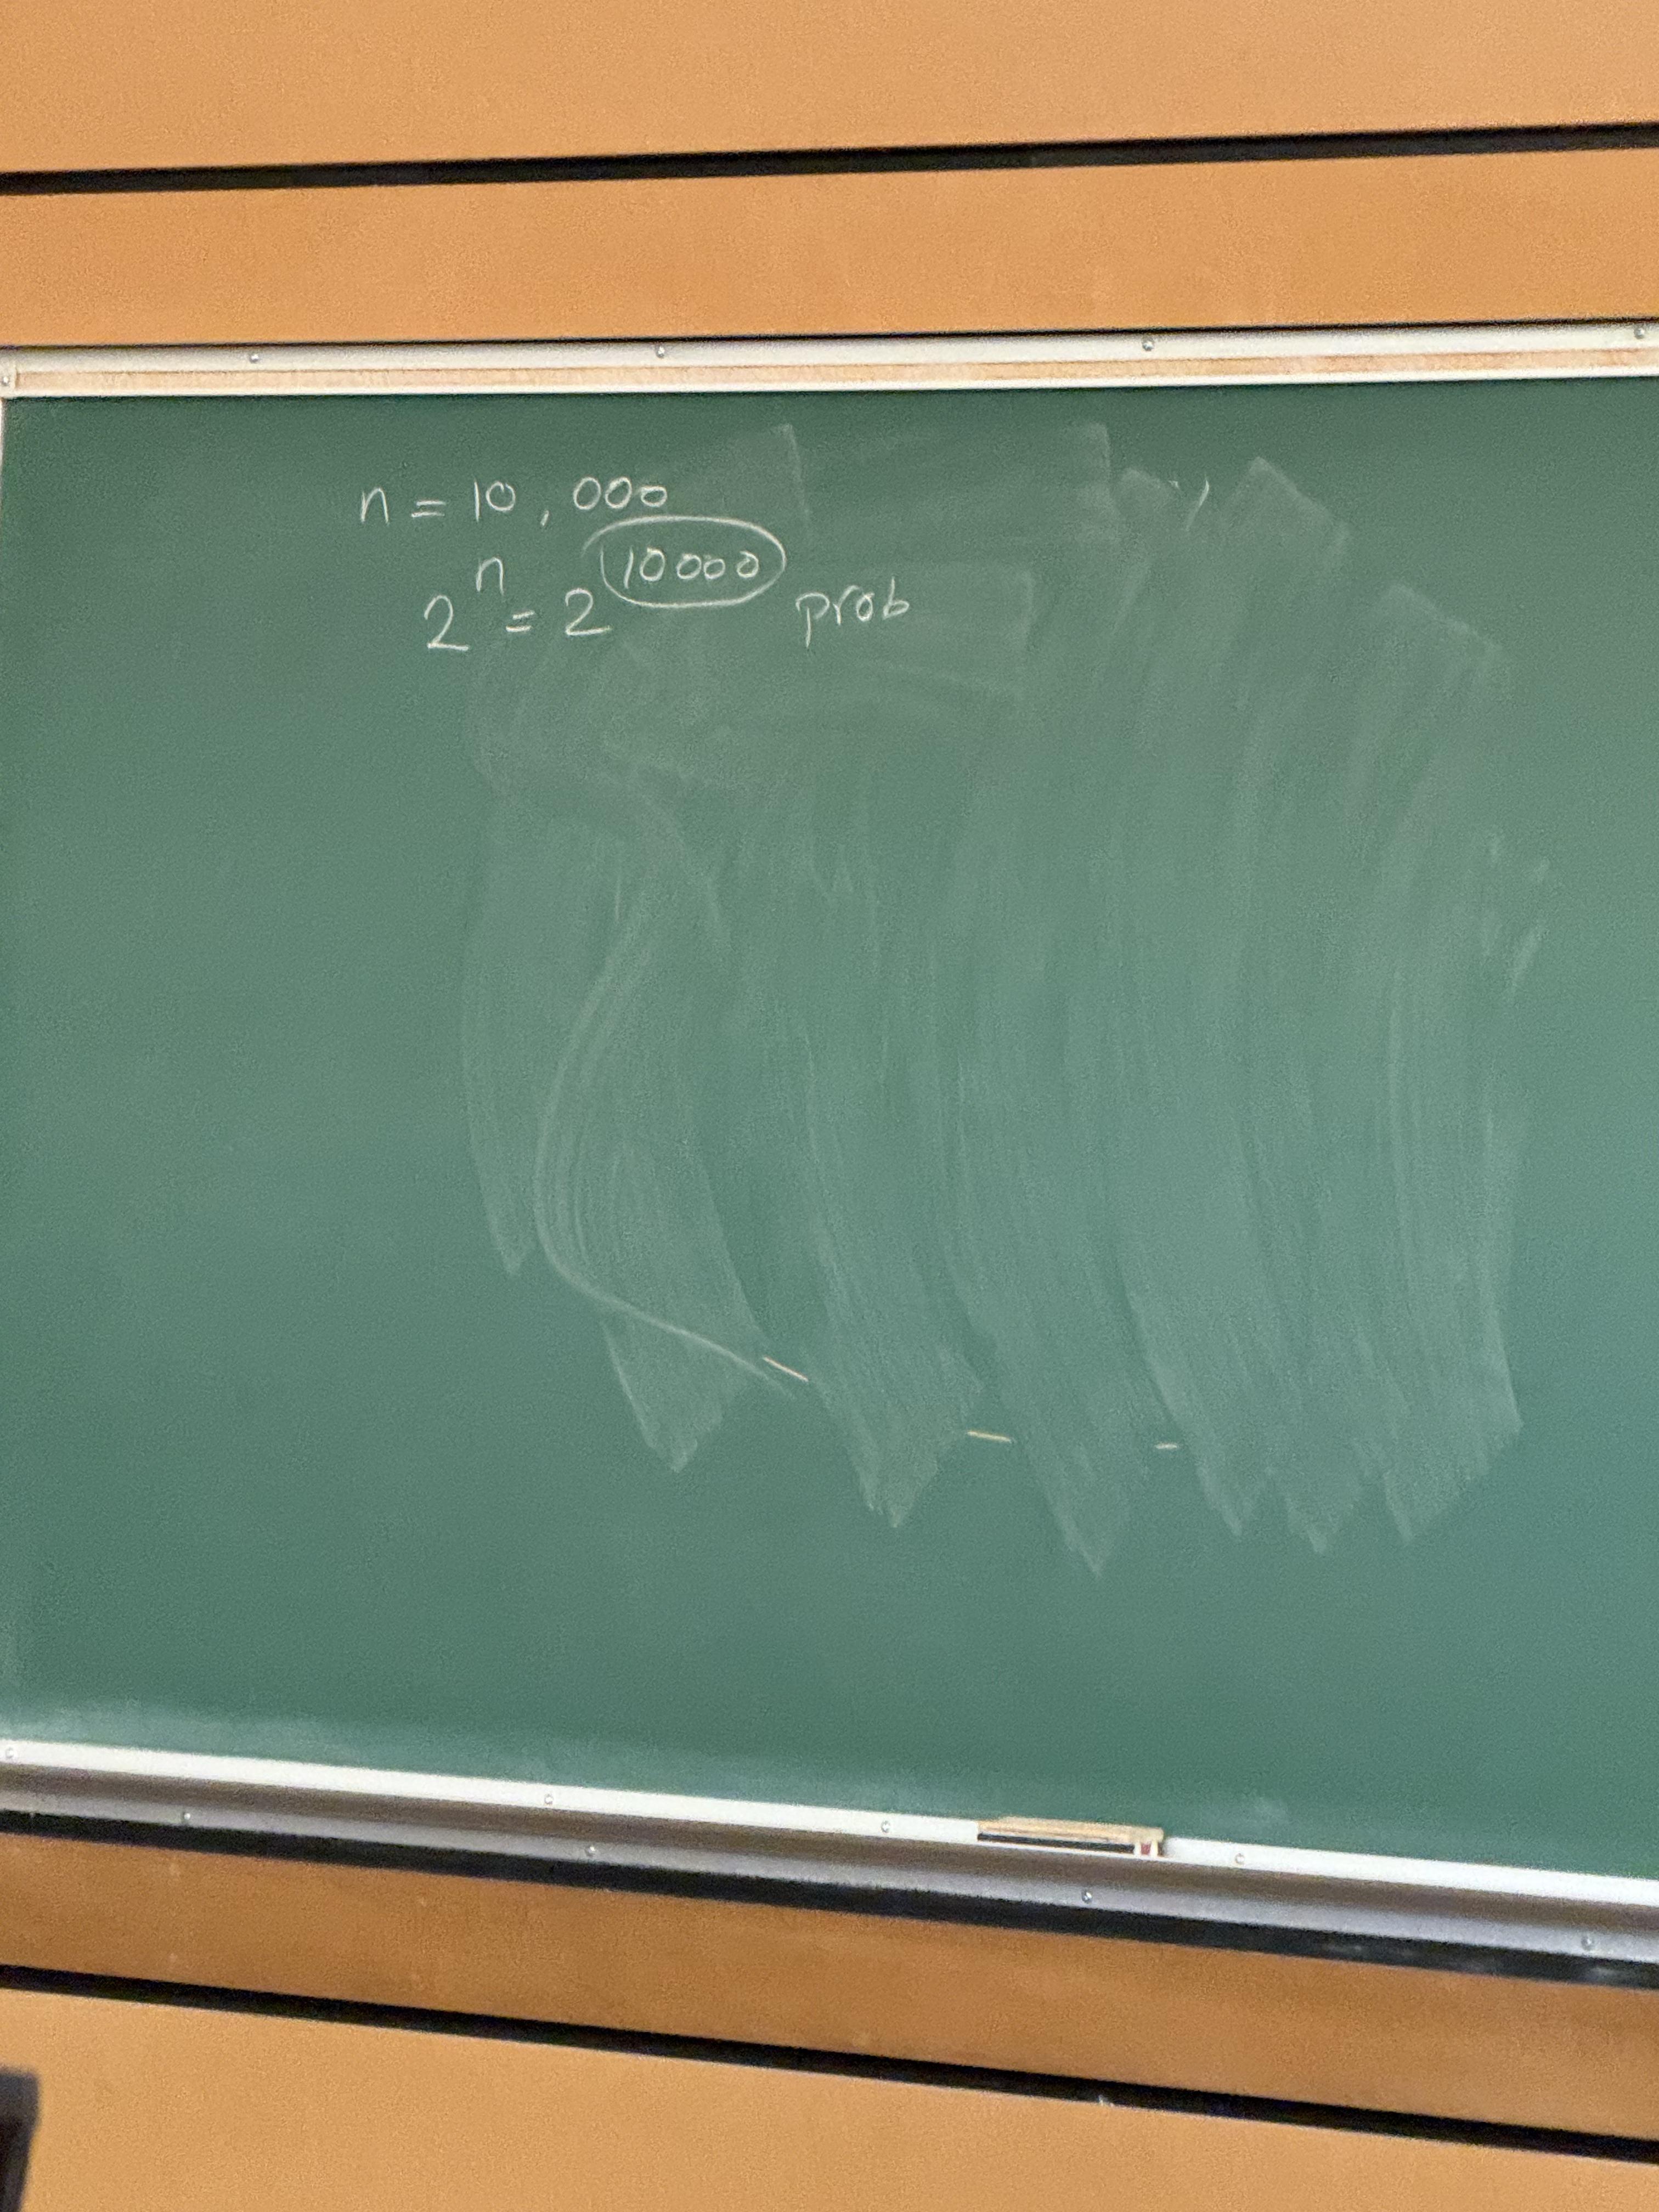 n = 10,000
2^n = 2^10000 prob